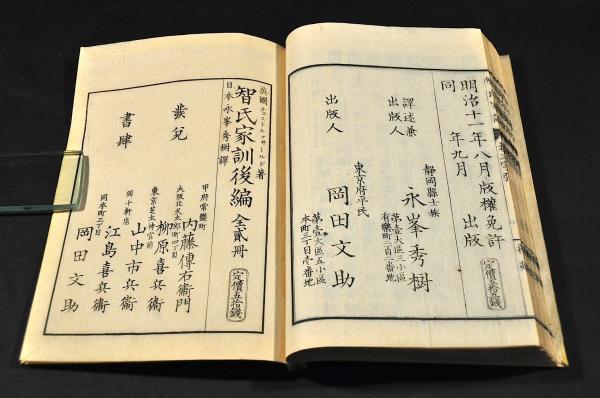 明治十一年八月版權免許
同　年九月　出版
定價五拾錢
譯述兼
出版人
靜岡縣士族
永峯秀樹
第壹大區三小區
有樂町二百二番地
出版人
東京府平民
岡田文助
第壹大區五小區
本町三丁目壱番地
英國チェストルフヰールド著
智氏家訓後編 全貳冊
定價五拾錢
日本永峯秀樹譯
發兌
書肆
甲府常盤町
内藤傳右衞門
柳原喜兵衞
東京芝大神宮前
山中市兵衞
同十軒店
江島喜兵衞
同本町三丁目
岡田文助